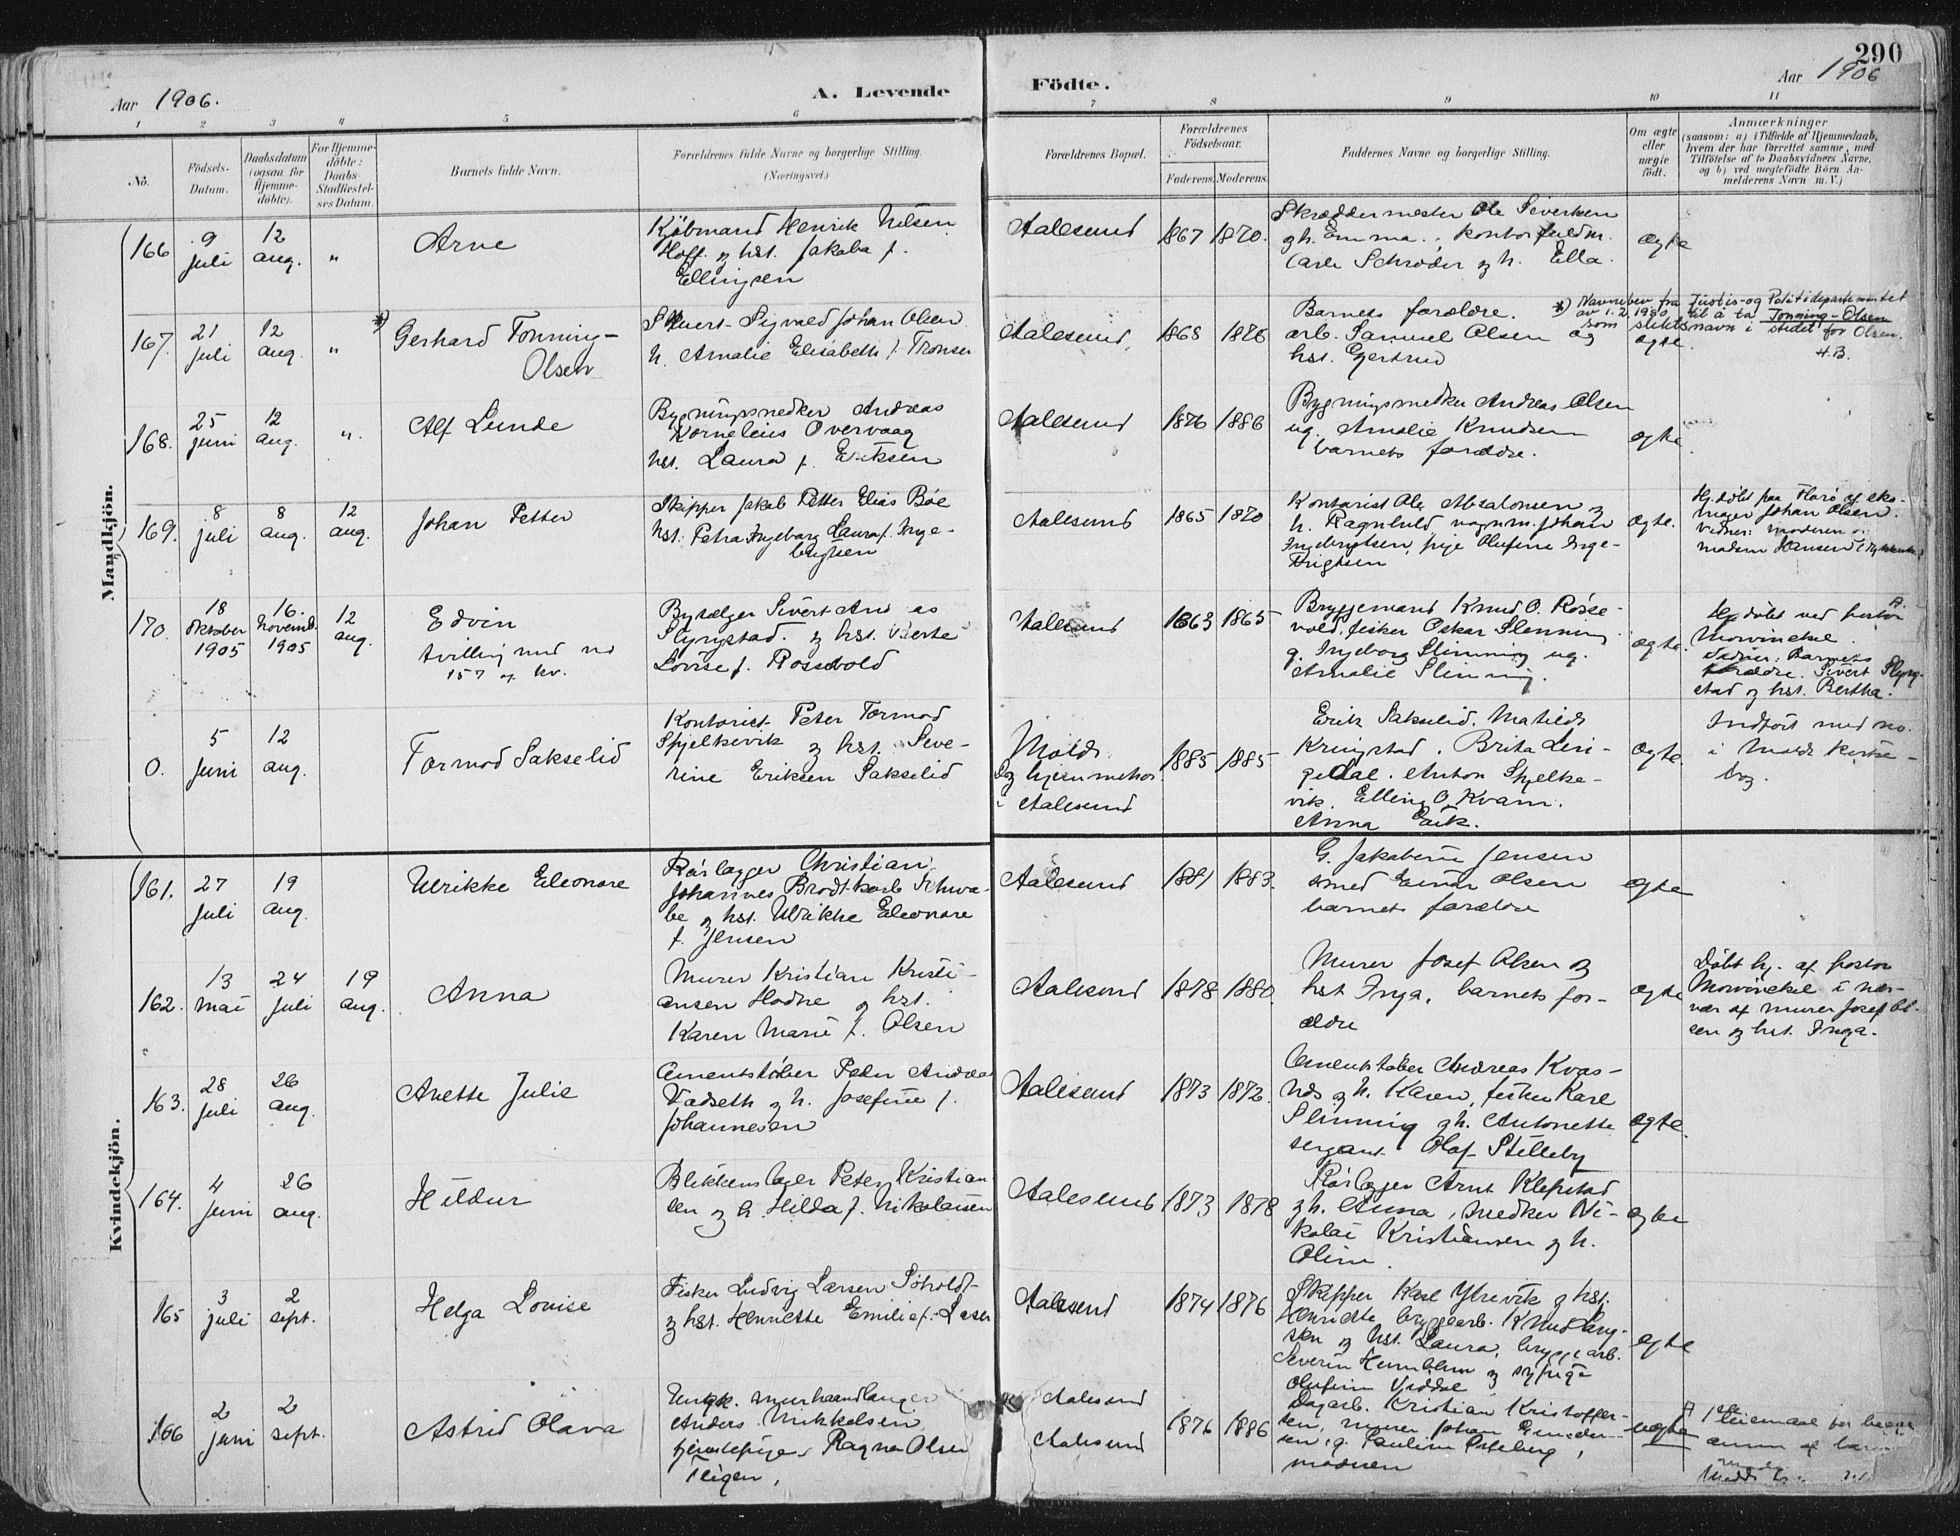 290
Aar 1906.
A. Levende
Födte.
Aar 1906
1 2 3 4 5 6 7 8 9 10 11
No.
Födsels-
Datum.
Daabsdatum
(ogsaa for
Hjemme-
döbte).
For Hjemme-
döbte:
Daabs-
Stadfæstel-
ses Datum.
Barnets fulde Navn.
Forældrenes fulde Navne og borgerlige Stilling.
(Næringsvei.)
Forældrenes Bopæl.
Forældrenes
Födselsaar.
Faderens. Moderens.
Faddernes Navne og borgerlige Stilling.
Om ægte
eller
uægte
födt.
Anmærkninger
(saasom: a) i Tilfælde af Hjemmedaab,
hvem der har forrettet samme, med
Tilföielse af to Daabsvidners Navne,
og b) ved uægtefödte Börn An-
melderens Navn m. V.)
Mandkjön.
166
9
juli
12
aug.
"
Arne
Kjøbmand Henrik Nilsen
Hoff og hst. Jakoba f.
Ellingsen
Aalesund
1867
1870.
Skræddermester Ole Sivertsen
og h. Emma.
Carl Schrøder og h. Ella.
ægte
167.
21
juli
12
aug.
"
*)
Gerhard Tonning-
Olsen
Sigvald Johan Olsen
h. Amalie Elisabeth f.
Aalesund
1868
1876
Barnets forældre.
arb. Samuel Olsen og
hst. Gjertrud
ægte.
*) Navnebev. fra Justis- og Politidepartementet
av 1.2.1930 til å ta Tonning-Olsen
som slektsnavn i stedet for Olsen.
H.B.
168.
25
juni
12
aug.
".
Alf Lunde
Bygningssnedker Andreas
Kornelius Overvaag
hst. Laura f. Eriksen
Aalesund
1876
1886
Bygningssnedker Andreas Olsen
ug. Amalie Knudsen
barnets forældre.
ægte
169.
8
juli
8
aug.
12
aug.
Johan Petter
Skipper Jakob Petter Elias Bøe
hst. Petra Ingeborg Laura f. Inge-
brigtsen
Aalesund
1865
1870
Kontorist Ole Absalonsen og
h. Ragnhild, vognm. Johan
Ingebrigtsen, pige Olufine Inge-
brigtsen
ægte.
Hj. døbt paa Florø af sko-
mager Johan Olsen.
Vidner: moderen og
madam Hansen
170.
18
oktober
1905
16.
novemb.
1905
12
aug.
Edvin
tvilling med no
157 af kv.
Bysælger Sivert Andreas
Slyngstad og hst. Berte
Lovise f. Rossvold
Aalesund
1863
1865
Bryggemand Knud O. Røsse-
vold, fisker Oskar Slinning
g. Ingeborg Slinning ug.
Amalie Slinning.
ægte.
Hj. døbt ved pastor A.
Mowinckel.
Vidner: Barnets
forældre Sivert Slyng-
stad og hst. Bertha.
0.
5
juni
12
aug.
Tormod Sakselid
Kontorist Peter Tormod
Spjelkevik og hst. Seve-
rine Eriksen Sakselid
Molde
Og hjemmehør.
i Aalesund
1885
1885
Erik Sakselid. Matilde
Kringstad. Brita
Anton Spjelke-
vik. Elling O. Kvam.
Anna Eik.
ægte.
Indført med no.
i Molde kirke-
bog.
Kvindekjön.
161.
27
juli
19
aug.
Ulrikke Eleonore
Rørlægger Christian
Johannes Brodtkorb Schwa-
be og hst. Ulrikke Eleonore
f. Jensen
Aalesund
1881
1883.
G. Jakobine Jensen
smed Einar Olsen
barnets forældre
ægte
162.
13
mai
24
juli
19
aug.
Anna
Murer Kristian Kristi-
ansen Hodne og hst.
Karen Marie f. Olsen
Aalesund
1878
1880
Murer Josef Olsen og
hst. Inga, barnets for-
ældre
ægte
Døbt hj. af pastor
Mowinckel i nær-
vær af murer Josef Ol-
sen og hst. Inga.
163.
28
juli
26
aug.
Anette Julie
Cementstøber Peder Andreas
Vadseth og h. Josefine f.
Johannesen
Aalesund
1873
1872.
Cementstøber Andreas Kvas-
nes og h. Karen, fisker Karl
Slinning og h. Antonette
sergeant Olaf Stilleby
ægte.
164.
4
juni
26
aug.
Hildur
Blikkenslager Peter Kristian-
sen og h. Hilda f. Nikolaisen
Aalesund
1873
1878
Rørlægger Arnt Klepstad
og h. Anna, snedker Ni-
kolai Kristiansen og h.
Oline.
ægte
165
3
juli
2
sept.
Helga Lovise
Fisker Ludvig Larsen Søholdt
og hst. Henriette Emilie f. Larsen
Aalesund
1874
1876
Skipper Karl Ytrevik og hst.
Henriette, bryggearb. Knud Lang-
sen og hst. Laura, bryggearb.
Severin Humblum og sypige
Olufine Viddal
ægte
166
2
juni
2
sept.
Astrid Olava
Ungk. murhaandlanger
Anders Mikkelsen
tjenestepige Ragna Olsen
Teigen.
Aalesund
Aalesund
1876
1886
Dagarb. Kristian Kristoffer-
sen, murer Johan Gunder-
sen, g. Pauline
moderen
uægte
1ste leiermaal for begge
anm. af